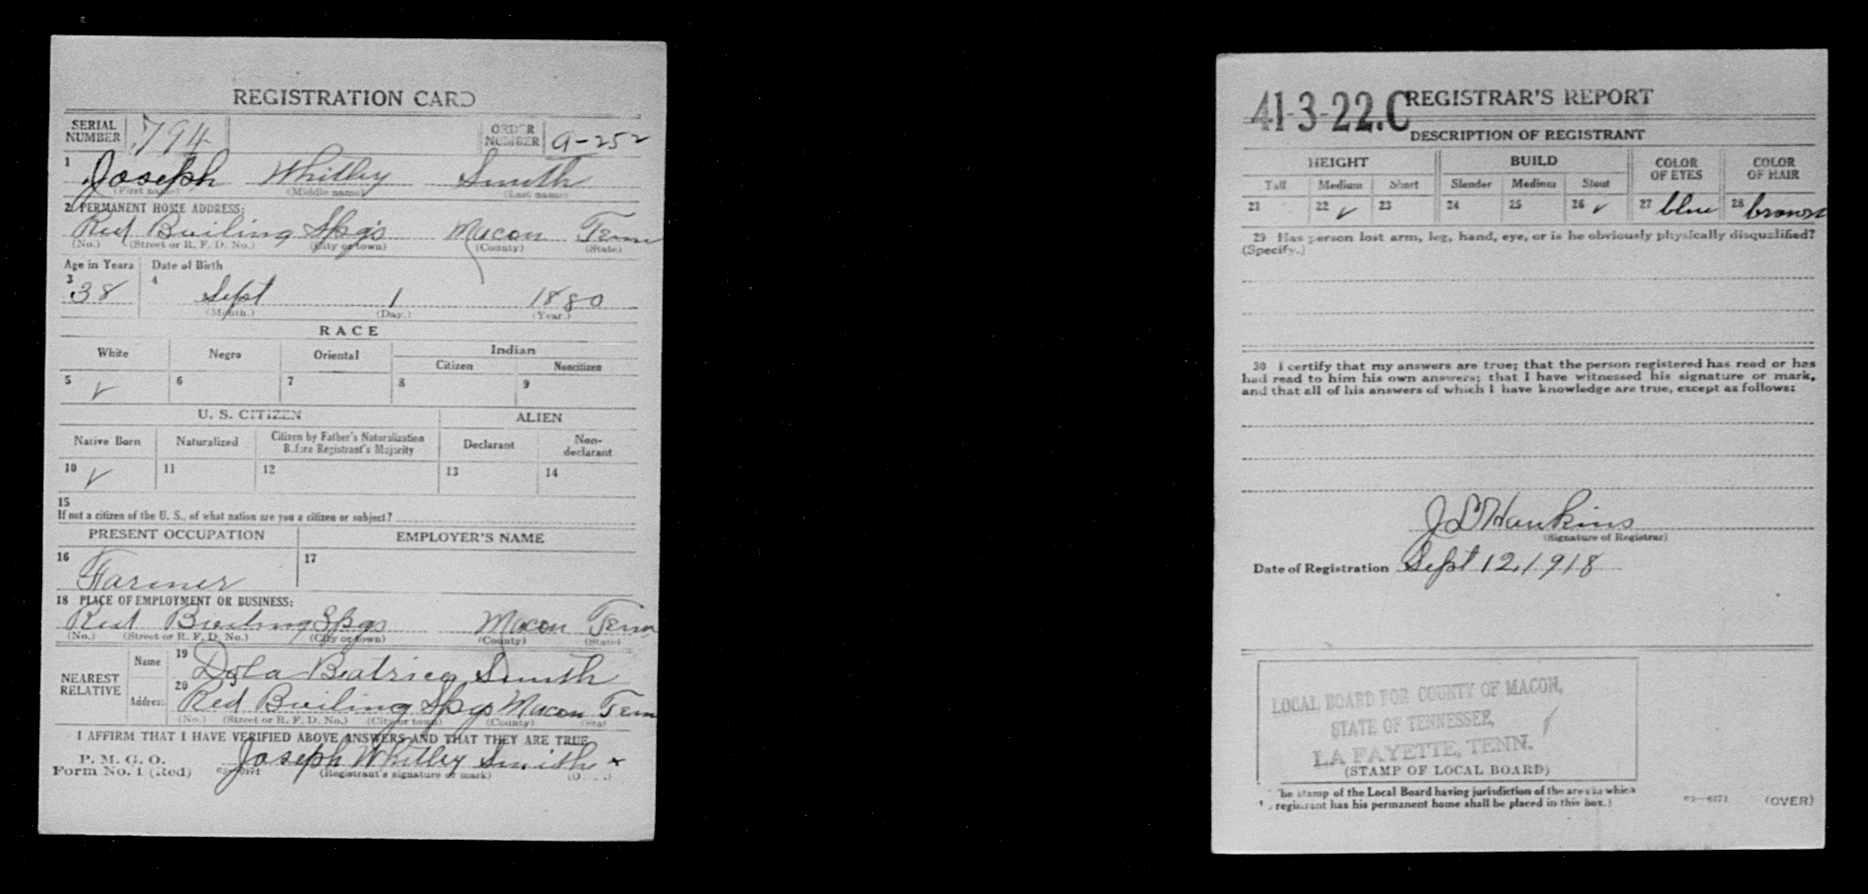 REGISTRATION CARD
SERIAL NUMBER 794 ORDER NUMBER a-252
1 Joseph Whitley Smith
(First name) (Middle name) (Last name)
2 PERMANENT HOME ADDRESS:
Red Boiling Spgs Macon Tenn
(No.) (Street or R. F. D. No.) (City or town) (County) (State)
Age in Years Date of Birth
3 38 4 Sept 1 1880
(Month.) (Day.) (Year.)
RACE
White Negro Oriental Indian
Citizen Noncitizen
5 ✓ 6 7 8 9
U. S. CITIZEN ALIEN
Native Born Naturalized Citizen by Father's Naturalization Before Registrant's Majority Declarant Non-declarant
10 ✓ 11 12 13 14
15
If not a citizen of the U. S., of what nation are you a citizen or subject?
PRESENT OCCUPATION EMPLOYER'S NAME
16 Farmer 17
18 PLACE OF EMPLOYMENT OR BUSINESS:
Red Boiling Spgs Macon Tenn
(No.) (Street or R. F. D. No.) (City or town) (County) (State)
NEAREST RELATIVE Name 19 Beatrice Smith
Address 20 Red Boiling Spgs Macon Tenn
(No.) (Street or R. F. D. No.) (City or town) (County) (State)
I AFFIRM THAT I HAVE VERIFIED ABOVE ANSWERS AND THAT THEY ARE TRUE
P. M. G. O.
Form No. 1 (Red) Joseph Whitley Smith x
(Registrant's signature or mark)
41-3-22.C REGISTRAR'S REPORT
DESCRIPTION OF REGISTRANT
HEIGHT BUILD COLOR OF EYES COLOR OF HAIR
Tall Medium Short Slender Medium Stout
21 22 ✓ 23 24 25 26 ✓ 27 blue 28 brown
29 Has person lost arm, leg, hand, eye, or is he obviously physically disqualified?
(Specify.)
30 I certify that my answers are true; that the person registered has read or has
had read to him his own answers; that I have witnessed his signature or mark,
and that all of his answers of which I have knowledge are true, except as follows:
Hawkins
(Signature of Registrar)
Date of Registration Sept 12, 1918
LOCAL BOARD FOR COUNTY OF MACON,
STATE OF TENNESSEE,
LA FAYETTE, TENN.
(STAMP OF LOCAL BOARD)
The stamp of the Local Board having jurisdiction of the area in which
registrant has his permanent home shall be placed in this box.)
(OVER)